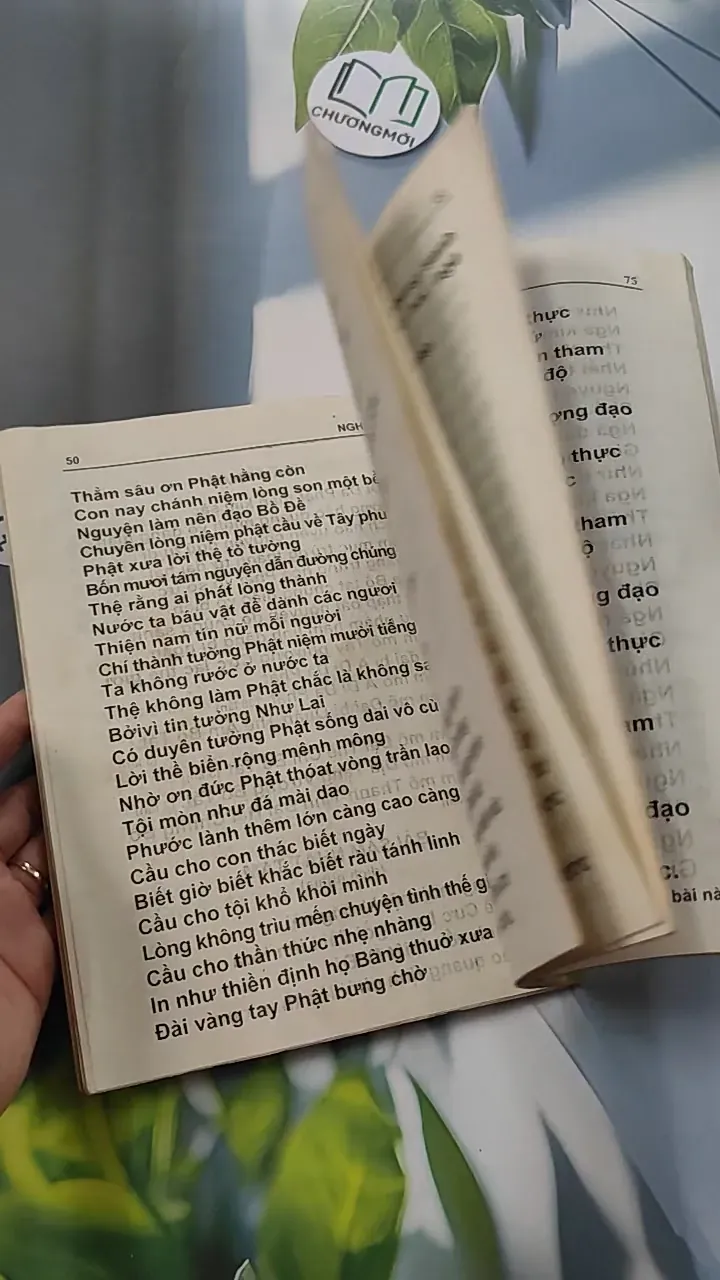 CHƯƠNGMỚI
50
NGH
Thẳm sâu ơn Phật hằng còn
Con nay chánh niệm lòng son một bề
Nguyện làm nên đạo Bồ Đề
Chuyên lòng niệm phật cầu về Tây phu
Phật xưa lời thệ tỏ tường
Bốn mươi tám nguyện dẫn đường chúng
Thệ rằng ai phát lòng thành
Nước ta báu vật để dành các ngươi
Thiện nam tín nữ mỗi người
Chí thành tưởng Phật niệm mười tiếng
Ta không rước ở nước ta
Thệ không làm Phật chắc là không sa
Bởivì tin tưởng Như Lai
Có duyên tưởng Phật sống dai vô cù
Lời thề biển rộng mênh mông
Nhờ ơn đức Phật thóat vòng trần lao
Tội mòn như đá mài dao
Phước lành thêm lớn càng cao càng
Cầu cho con thác biết ngày
Biết giờ biết khắc biết rày tánh linh
Cầu cho tội khổ khỏi mình
Lòng không trìu mến chuyện tình thế g
Cầu cho thần thức nhẹ nhàng
In như thiền định họ Bàng thuở xưa
Đài vàng tay Phật bưng chờ
75
thực
tham
độ
ơng đạo
thực
tham
ộ
g đạo
thực
đạo
bài nà